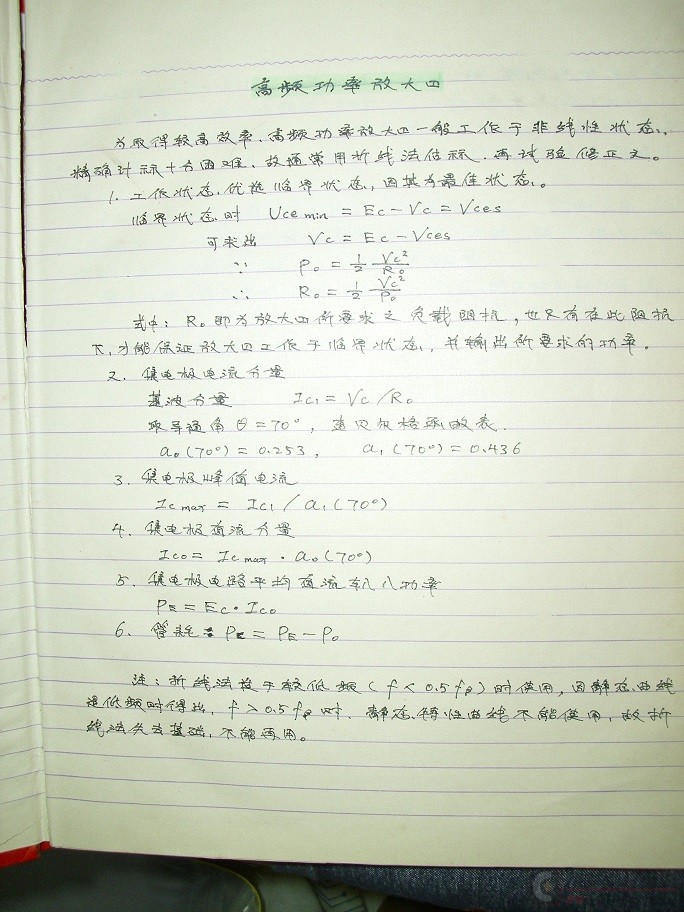 高频功率放大四
为取得较高效率，高频功率放大四一般工作于非线性状态，
精确计祘十分困难，故通常用折线法估祘，再试验修正之。
1. 工作状态，优选临界状态，因其为最佳状态。
临界状态时 Uce min = Ec − Vc = Vces
可求出 Vc = Ec − Vces
∵ Po = 1/2 Vc²/Ro
∴ Ro = 1/2 Vc²/Po
式中：Ro 即为放大四所要求之负载阻抗，也只有在此阻抗
下，才能保证放大四工作于临界状态，并输出所要求的功率。
2. 集电极电流分量
基波分量 Ic1 = Vc / Ro
取导通角 θ = 70°，查贝尔格函数表．
a₀(70°) = 0.253， a₁(70°) = 0.436
3. 集电极峰值电流
Ic max = Ic1 / a₁(70°)
4. 集电极直流分量
Ico = Ic max · a₀(70°)
5. 集电极电路平均直流输入功率
PE = Ec · Ico
6. 管耗：Pc = PE − Po
注：折线法投于较低频（f < 0.5fβ）时使用，因静态曲线
是低频时得出，f > 0.5fβ 时，静态特性曲线不能使用，故折
线法失去基础，不能再用。